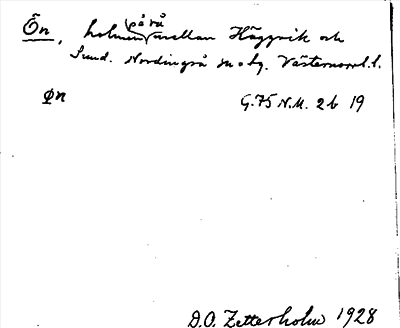 Ön, holmen på rå mellan Häggvik och
Sund. Nordingrå sn o hg. Västernorrl. l.
Øn G.75 N.M. 2b 19
D.O. Zetterholm 1928